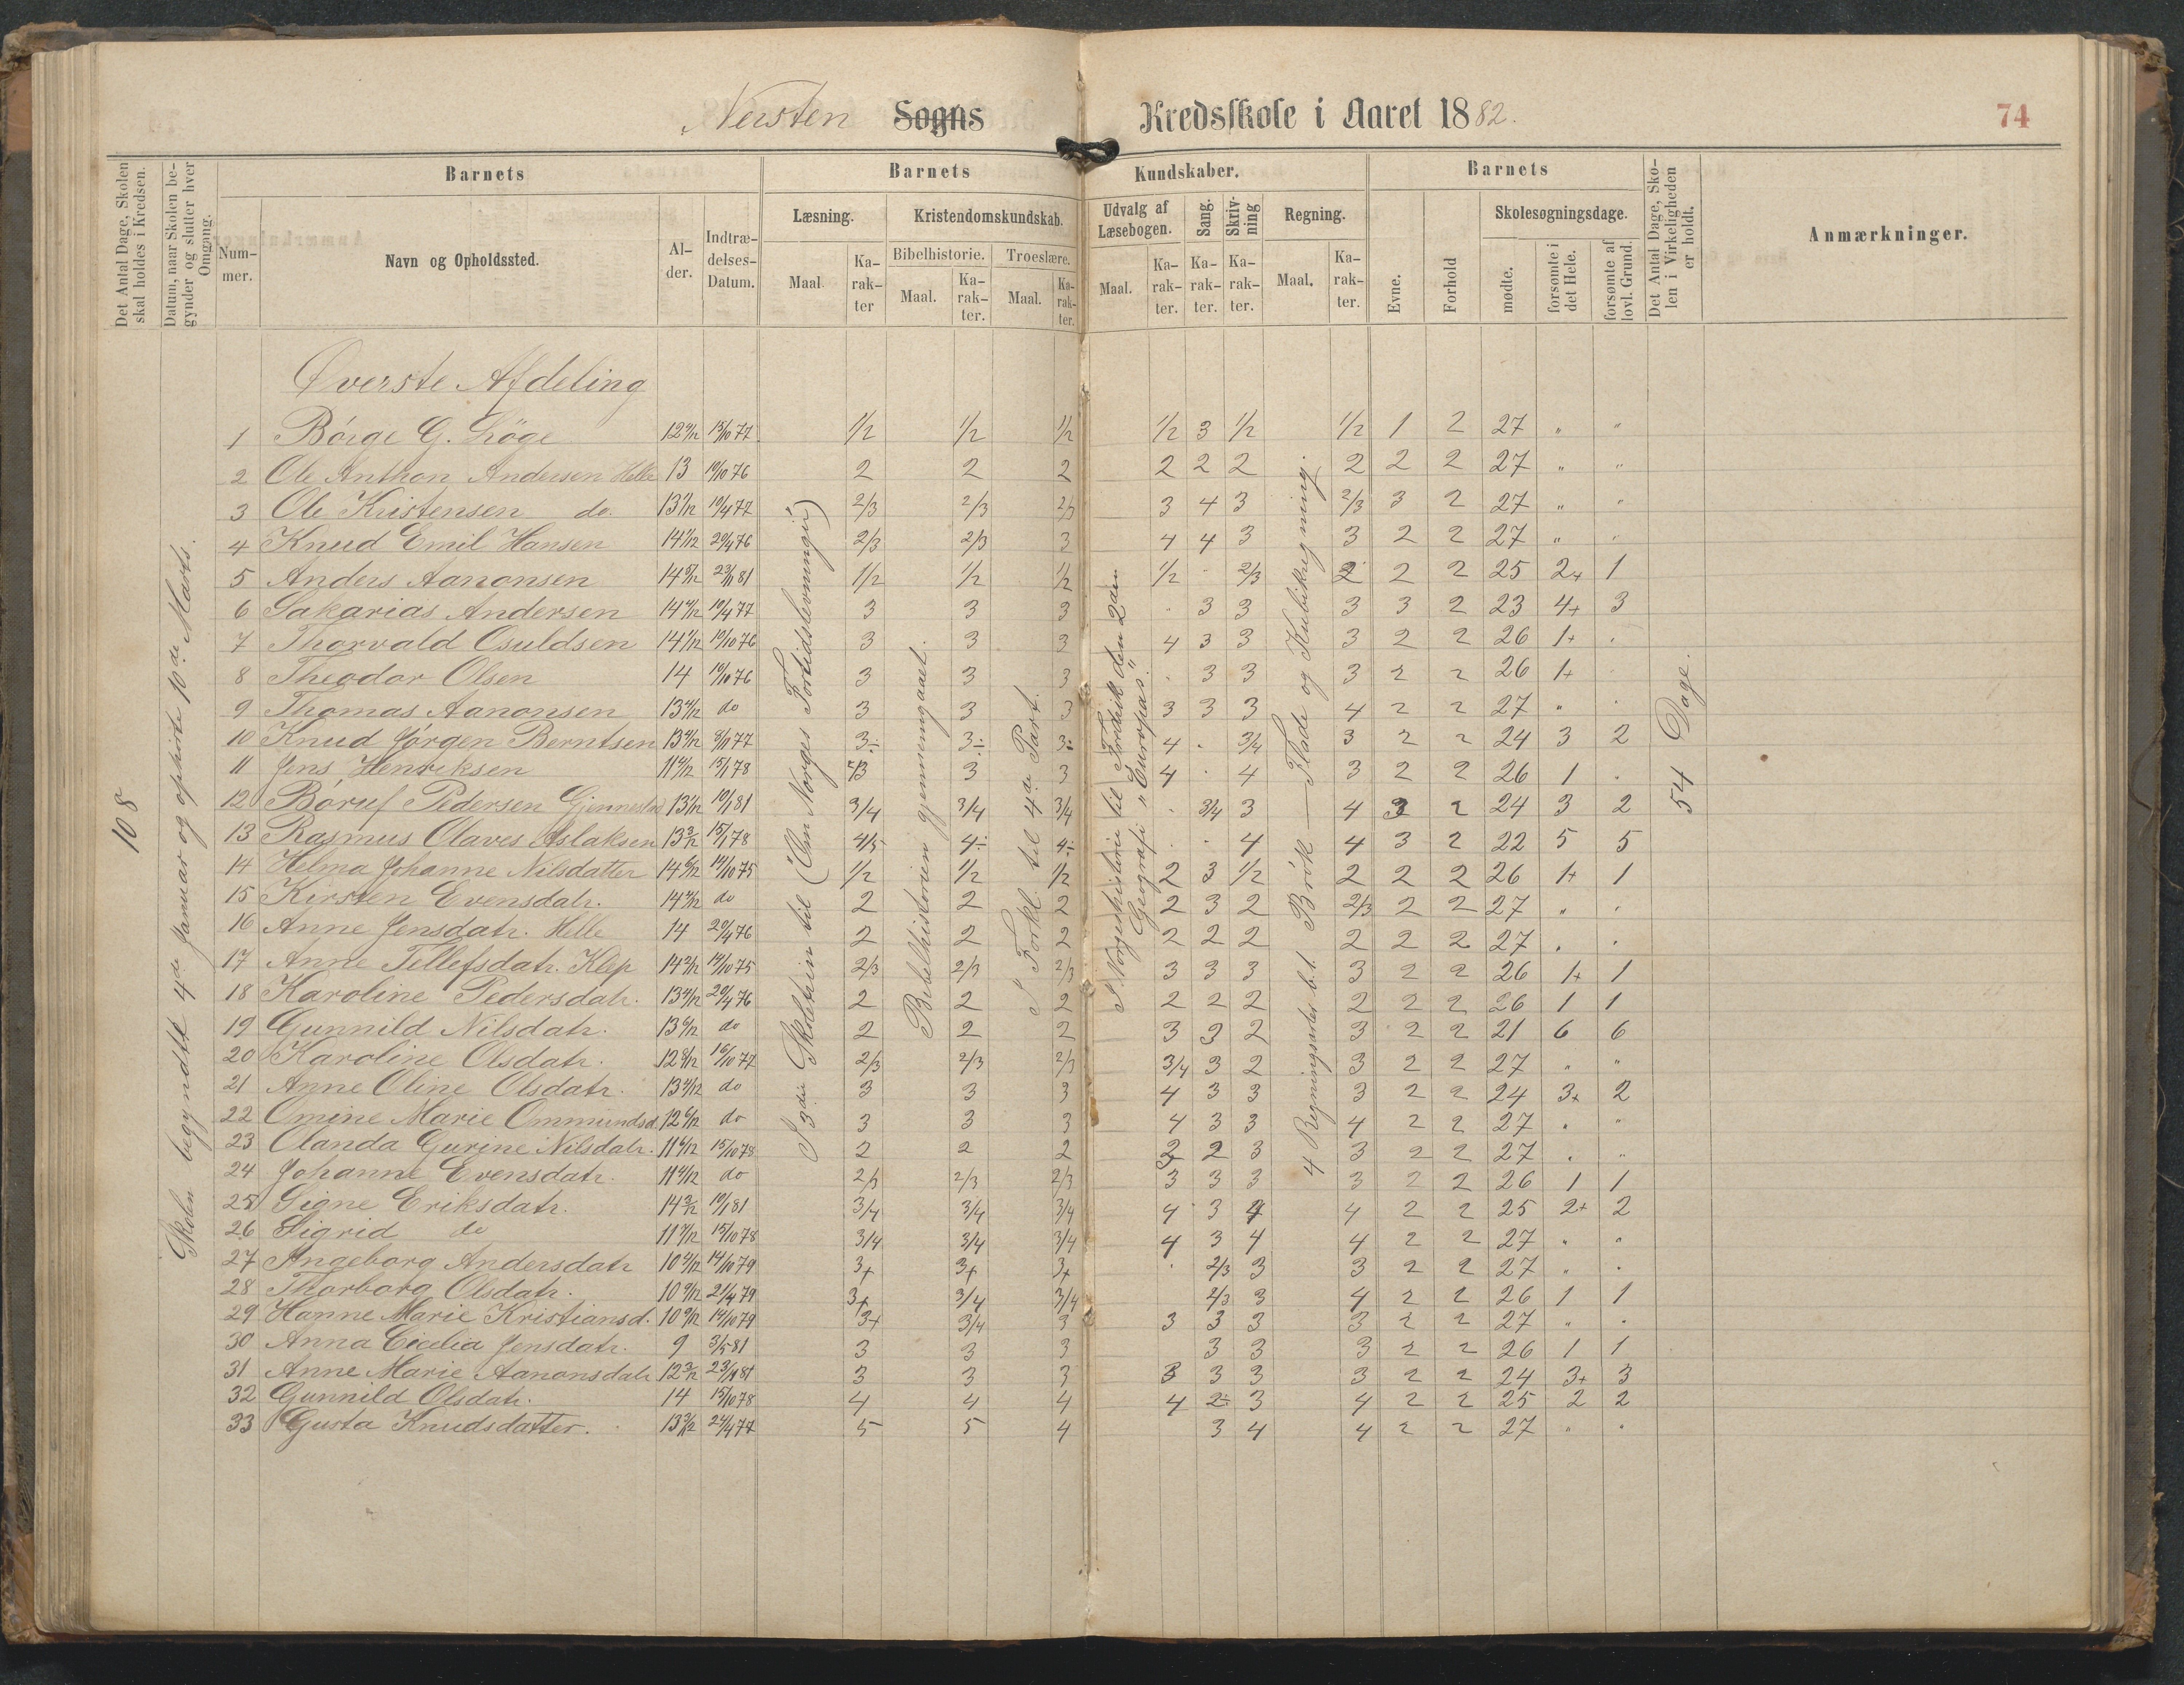 Nersten Sogns Kredsskole i Aaret 1882.
74
Det Antal Dage, Skolen skal holdes i Kredsen.
Datum, naar Skolen begynder og slutter hver Omgang.
Barnets
Nummer.
Navn og Opholdssted.
Alder.
Indtrædelses-Datum.
Barnets Kundskaber.
Læsning.
Maal
Karakter
Kristendomskundskab.
Bibelhistorie.
Maal.
Karakter.
Troeslære.
Maal.
Karakter.
Udvalg af Læsebogen.
Maal.
Karakter.
Sang.
Karakter.
Skrivning
Karakter.
Regning.
Maal.
Karakter.
Barnets
Evne.
Forhold
Skolesøgningsdage.
mødte.
forsømte i det Hele.
forsømte af lovl. Grund.
Det Antal Dage, Skolen i Virkeligheden er holdt.
Anmærkninger.
108
Skolen begyndte 4de Januar og ophørte 10de Marts.
I 3die Skoletrin til (Om Norges Fortidslevninger)
Bibelhistorien gjennemgaaet.
I Forkl. til 4de Part.
I Norgeshistorie til Fredrik den 2den
Geografi "Europas".
4 Regningsarter b.t. Brøk — Flade og Kubikregning.
54 Dage.
Øverste Afdeling
1 Børge G. 15/10 77 1/2 1/2 1/2 1/2 3 1/2 1/2 1 2 27 " "
2 Ole Anthon Andersen Helle 13 10/10 76 2 2 2 2 2 2 2 2 2 27 " "
3 Ole Kristensen do. 13 1/12 10/4 77 2/3 2/3 2/3 3 4 3 2/3 3 2 27 " "
4 Knud Emil Hansen 14 1/12 20/4 76 2/3 2/3 3 4 4 3 3 2 2 27 " "
5 Anders Aanonsen 14 8/12 23/11 81 1/2 1/2 1/2 1/2 . 2/3 2 2 2 25 2+ 1
6 Sakarias Andersen 14 4/12 10/4 77 3 3 3 . 3 3 3 3 2 23 4+ 3
7 Thorvald Osuldsen 14 1/12 10/10 76 3 3 3 4 3 3 3 2 2 26 1+ .
8 Theodor Olsen 14 10/10 76 3 3 3 . 3 3 3 2 2 26 1+ .
9 Thomas Aanonsen 13 4/12 do 3 3 3 3 3 3 4 2 2 27 " .
10 Knud Jørgen Berntsen 13 4/12 8/11 77 3÷ 3÷ 3÷ 4 . 3/4 3 2 2 24 3 2
11 Jens Henriksen 11 4/12 15/1 78 2/3 3 3 4 . 4 3 2 2 26 1 .
12 Børuf Pedersen 13 1/12 10/1 81 3/4 3/4 3/4 . 3/4 3 4 3 2 24 3 2
13 Rasmus Olaves Aslaksen 13 3/12 15/1 78 4/5 4÷ 4÷ . . 4 4 3 2 22 5 5
14 Helma Johanne Nilsdatter 14 6/12 14/10 75 1/2 1/2 1/2 2 3 1/2 2 2 2 26 1+ 1
15 Kirsten Evensdatr. 14 4/12 do 2 2 2 2 3 2 2/3 2 2 27 " .
16 Anne Jensdatr. Helle 14 20/4 76 2 2 2 2 2 2 2 2 2 27 . .
17 Anne Tellefsdatr. Klep 14 2/12 14/10 75 2/3 2/3 2/3 3 3 3 3 2 2 26 1+ 1
18 Karoline Pedersdatr. 13 4/12 20/4 76 2 2 2 2 2 2 2 2 2 26 1 1
19 Gunnild Nilsdatr. 13 6/12 do 2 2 2 3 3 2 3 2 2 21 6 6
20 Karoline Olsdatr. 12 8/12 16/10 77 2/3 2/3 2/3 3/4 3 2 3 2 2 27 " "
21 Anne Oline Olsdatr. 13 4/12 do 3 3 3 4 3 3 3 2 2 24 3+ 2
22 Omine Marie Ommundsd. 12 6/12 do 3 3 3 4 3 3 4 2 2 27 . "
23 Olanda Gurine Nilsdatr. 11 6/12 15/10 78 2 2 2 2 2 3 3 2 2 27 . "
24 Johanne Evensdatr. 11 4/12 do 2/3 2/3 2/3 3 3 3 3 2 2 26 1 1
25 Signe Eriksdatr. 14 3/12 10/1 81 3/4 3/4 3/4 4 3 4 4 2 2 25 2+ 2
26 Sigrid do 11 9/12 15/10 78 3/4 3/4 3/4 4 3 4 4 2 2 27 " "
27 Ingeborg Andersdatr 10 4/12 14/10 79 3+ 3+ 3+ . 2/3 3 3 2 2 27 " .
28 Thorborg Olsdatr. 10 9/12 21/4 79 3+ 3/4 3/4 2/3 3 4 2 2 26 1 1
29 Hanne Marie Kristiansd. 10 9/12 14/10 79 3+ 3/4 3 3 3 3 3 2 2 27 " .
30 Anna Cicelia Jensdatr. 9 3/5 81 3 3 3 3 3 3 2 2 26 1 1
31 Anne Marie Aanonsdatr 12 3/12 23/11 81 3 3 3 3 3 3 3 2 2 24 3+ 3
32 Gunnild Olsdatr. 14 15/10 78 4 4 4 4 2÷ 3 4 2 2 25 2 2
33 Gusta Knudsdatter. 24/4 77 5 5 4 3 4 4 2 2 27 " .